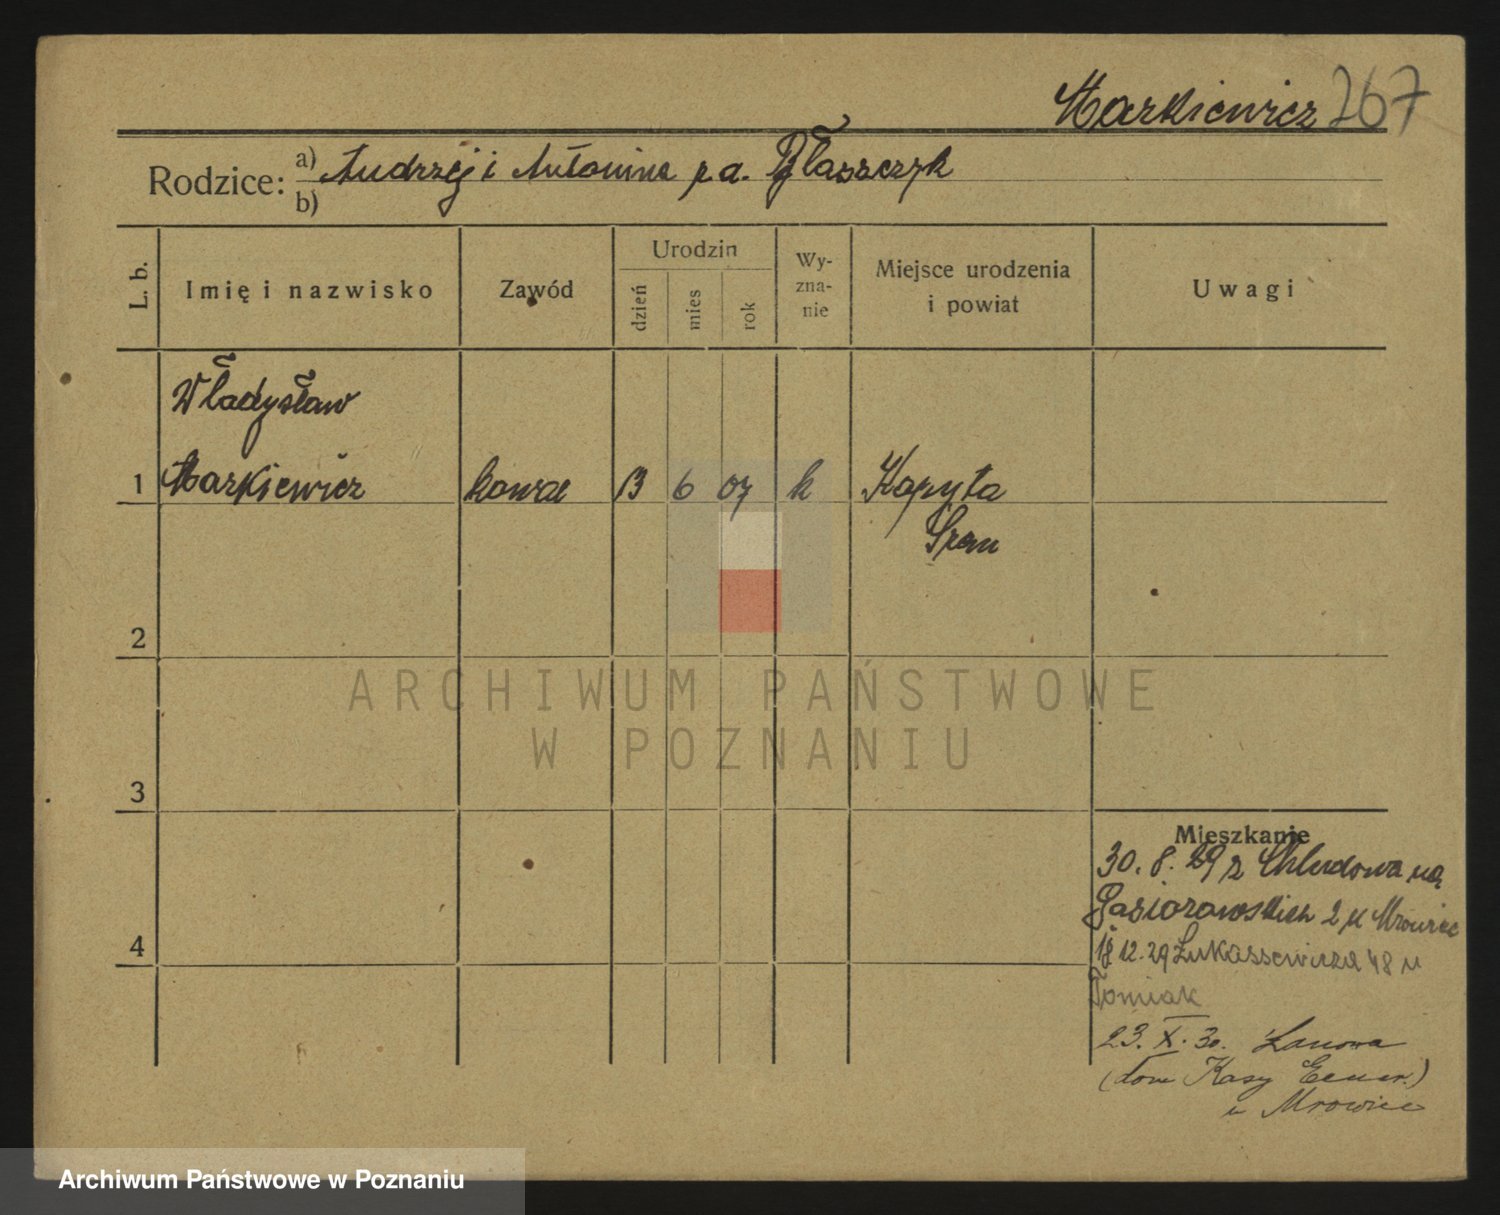 Markiewicz 267
Rodzice: a) Andrzej i Antonina z d. Błaszczyk
b)
L. b.
Imię i nazwisko
Zawód
Urodzin
dzień
mies
rok
Wy-
zna-
nie
Miejsce urodzenia
i powiat
Uwagi
Władysław
1 Markiewicz kowal 13 6 07 k Kopyta
Śrem
2
3
4
Mieszkanie
30. 8. 29 z Chludowa na
Gąsiorowskich 2 u Mrowiec
12. 29 Łukaszewicza 48 u
Tomiak
23. X. 30. Łanowa
(dom Kasy)
u Mrowiec
ARCHIWUM PAŃSTWOWE
W POZNANIU
Archiwum Państwowe w Poznaniu